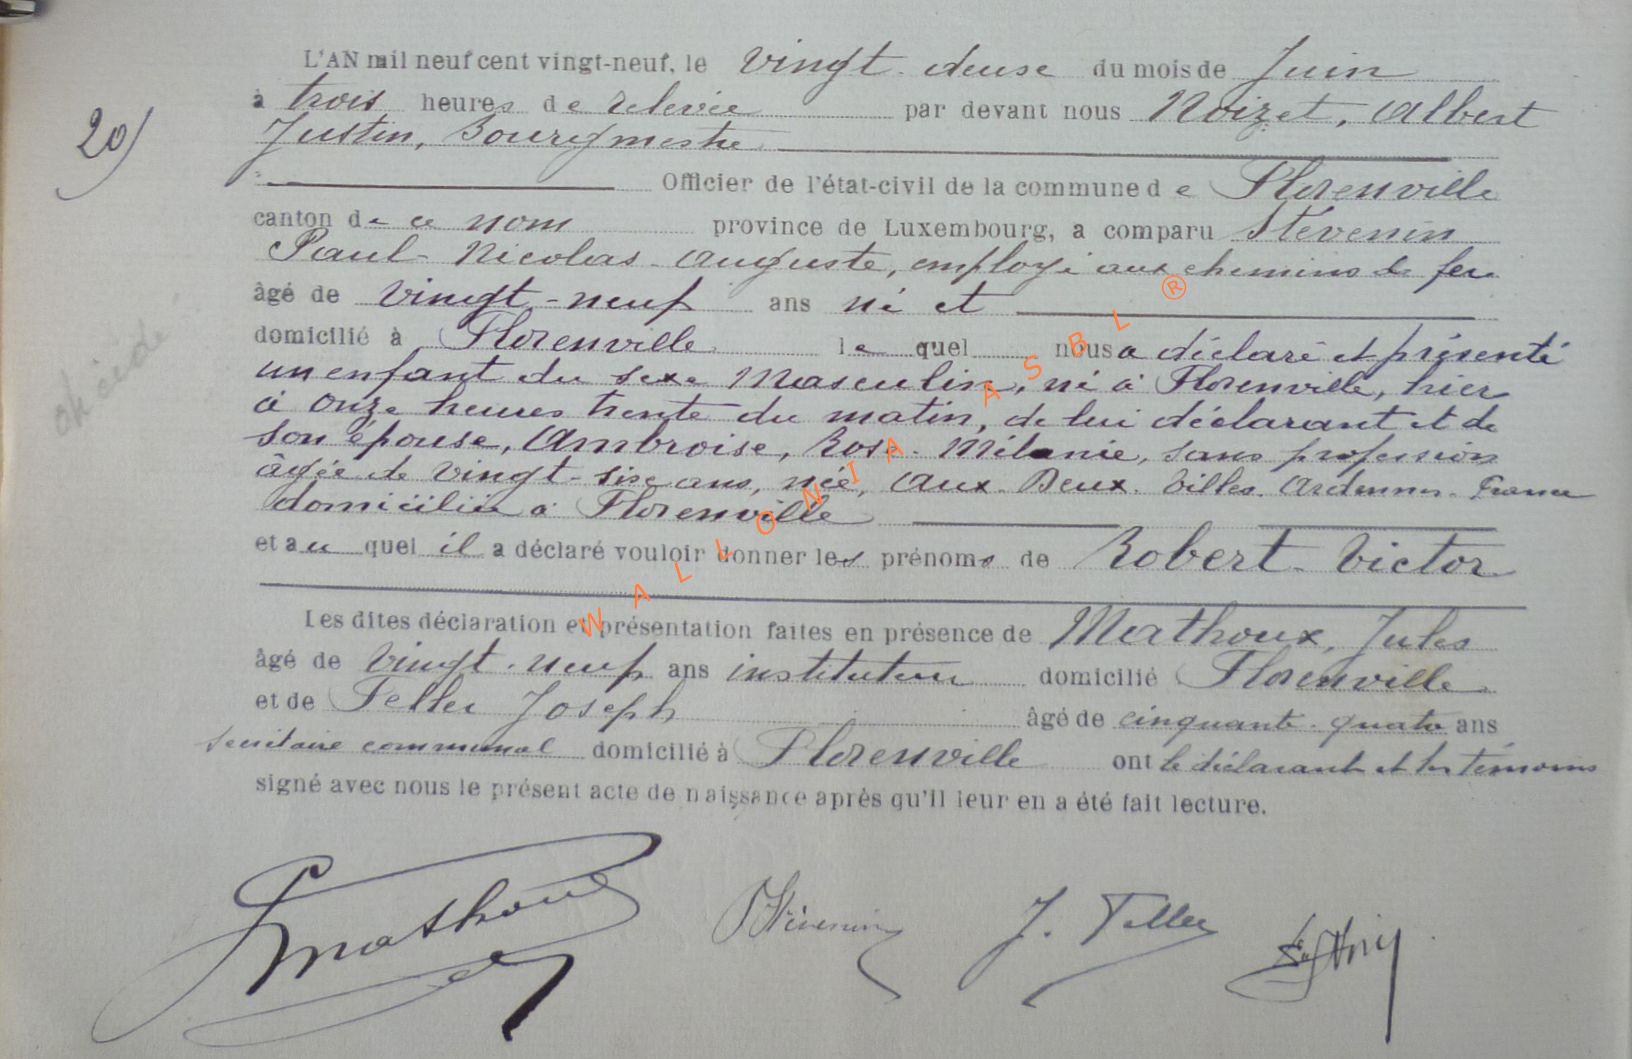 L'AN mil neuf cent vingt-neuf, le vingt-deux du mois de Juin
20) à trois heures de relevée par devant nous Noizet, Albert
Justin, Bourgmestre
Officier de l'état-civil de la commune de Florenville
canton de ce nom province de Luxembourg, a comparu Stévenin
Paul-Nicolas-Auguste, employé aux chemins de fer
âgé de vingt-neuf ans né et
domicilié à Florenville lequel nous a déclaré et présenté
un enfant du sexe Masculin, né à Florenville, hier
à onze heures trente du matin, de lui déclarant et de
son épouse, Ambroise, Rose-Mélanie, sans profession
âgée de vingt-six ans, née, Aux-Deux-Villes Ardennes-France
domiciliée à Florenville
et au quel il a déclaré vouloir donner les prénoms de Robert-Victor
Les dites déclaration et présentation faites en présence de Mathoux, Jules
âgé de vingt-neuf ans instituteur domicilié Florenville
et de Feller Joseph âgé de cinquante-quatre ans
secrétaire communal domicilié à Florenville ont le déclarant et les témoins
signé avec nous le présent acte de naissance après qu'il leur en a été fait lecture.
Mathoux Stévenin J. Feller
décédé
WALLONIA ASBL ®